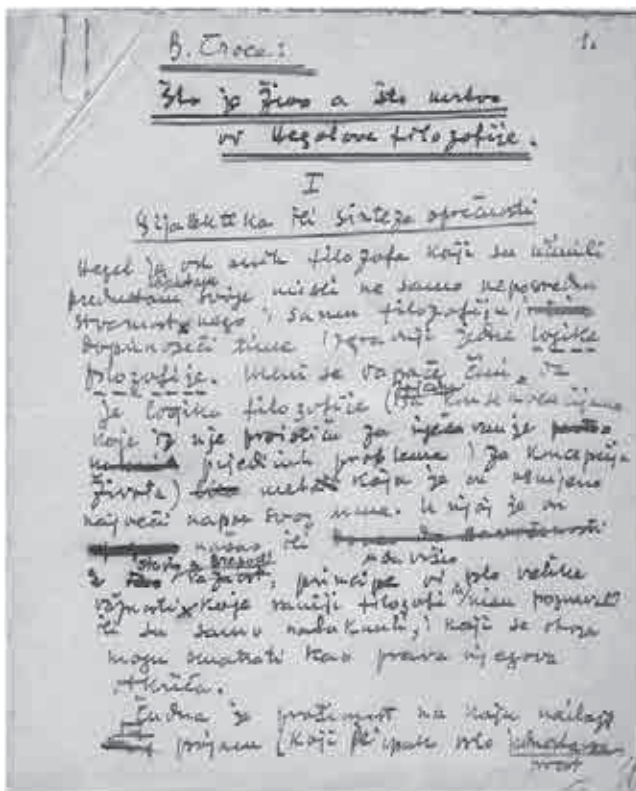 B. Croce: 1.
Što je živo a što mrtvo
od Hegelove filozofije.
I
Dijalektika ili sinteza oprečnosti
Hegel je od onih filozofa koji su učinili
predmetom svoje misli ne samo neposrednu
stvarnost nego i samu filozofiju,
doprinoseći time izgradnji jedne logike
filozofije. Meni se dapače čini, da
je logika filozofije (sa
koje iz nje proističu za rješavanje
pojedinih problema i za koncepciju
života) meta koja je on usmjerio
najveći napor svog uma. U njoj je on
našao ili
i, principe od vrlo velike
važnosti koje raniji filozofi nisu poznavali
ili su samo natuknuli, i koji se stoga
mogu smatrati kao prava njegova
otkrića.
Čudna je na koju nailazi
prijem (koji je ipak vrlo